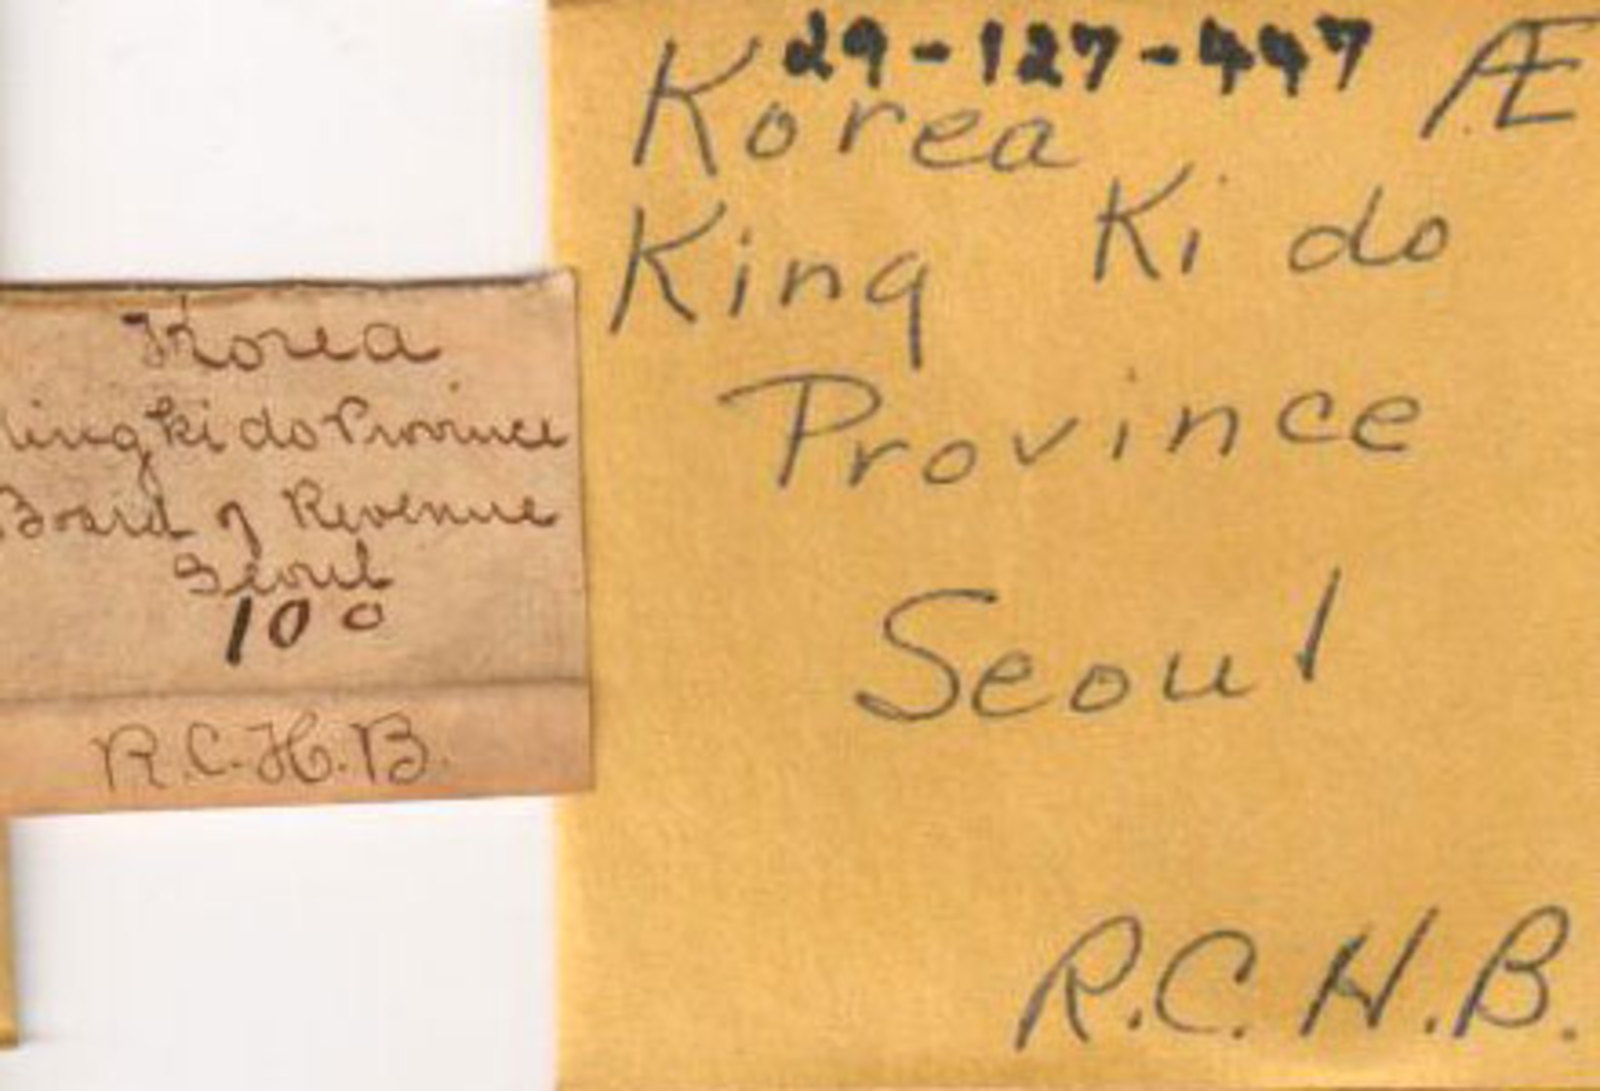 Korea
King ki do Province
Board of Revenue
Seoul
100
R.C.H.B.
29-127-447
Korea Æ
King Ki do
Province
Seoul
R.C.H.B.